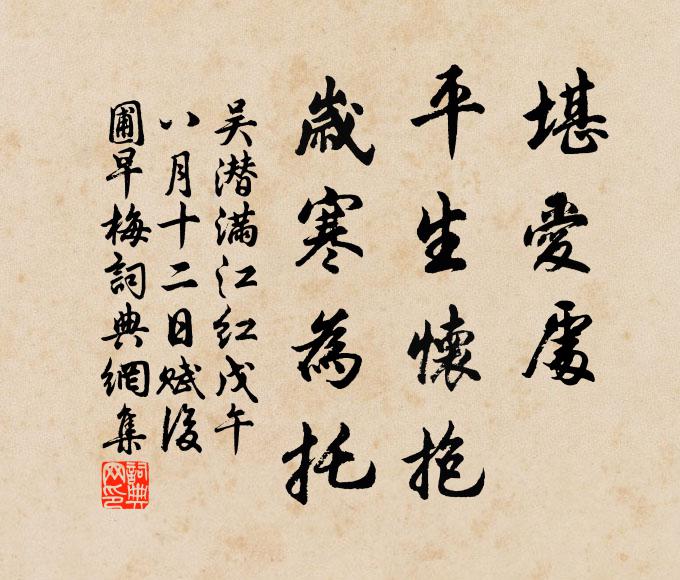 堪愛處
平生懷抱
歲寒為托
吴潜滿江紅戊午
八月十二日赋後
圃早梅詞典網集
詞典网印